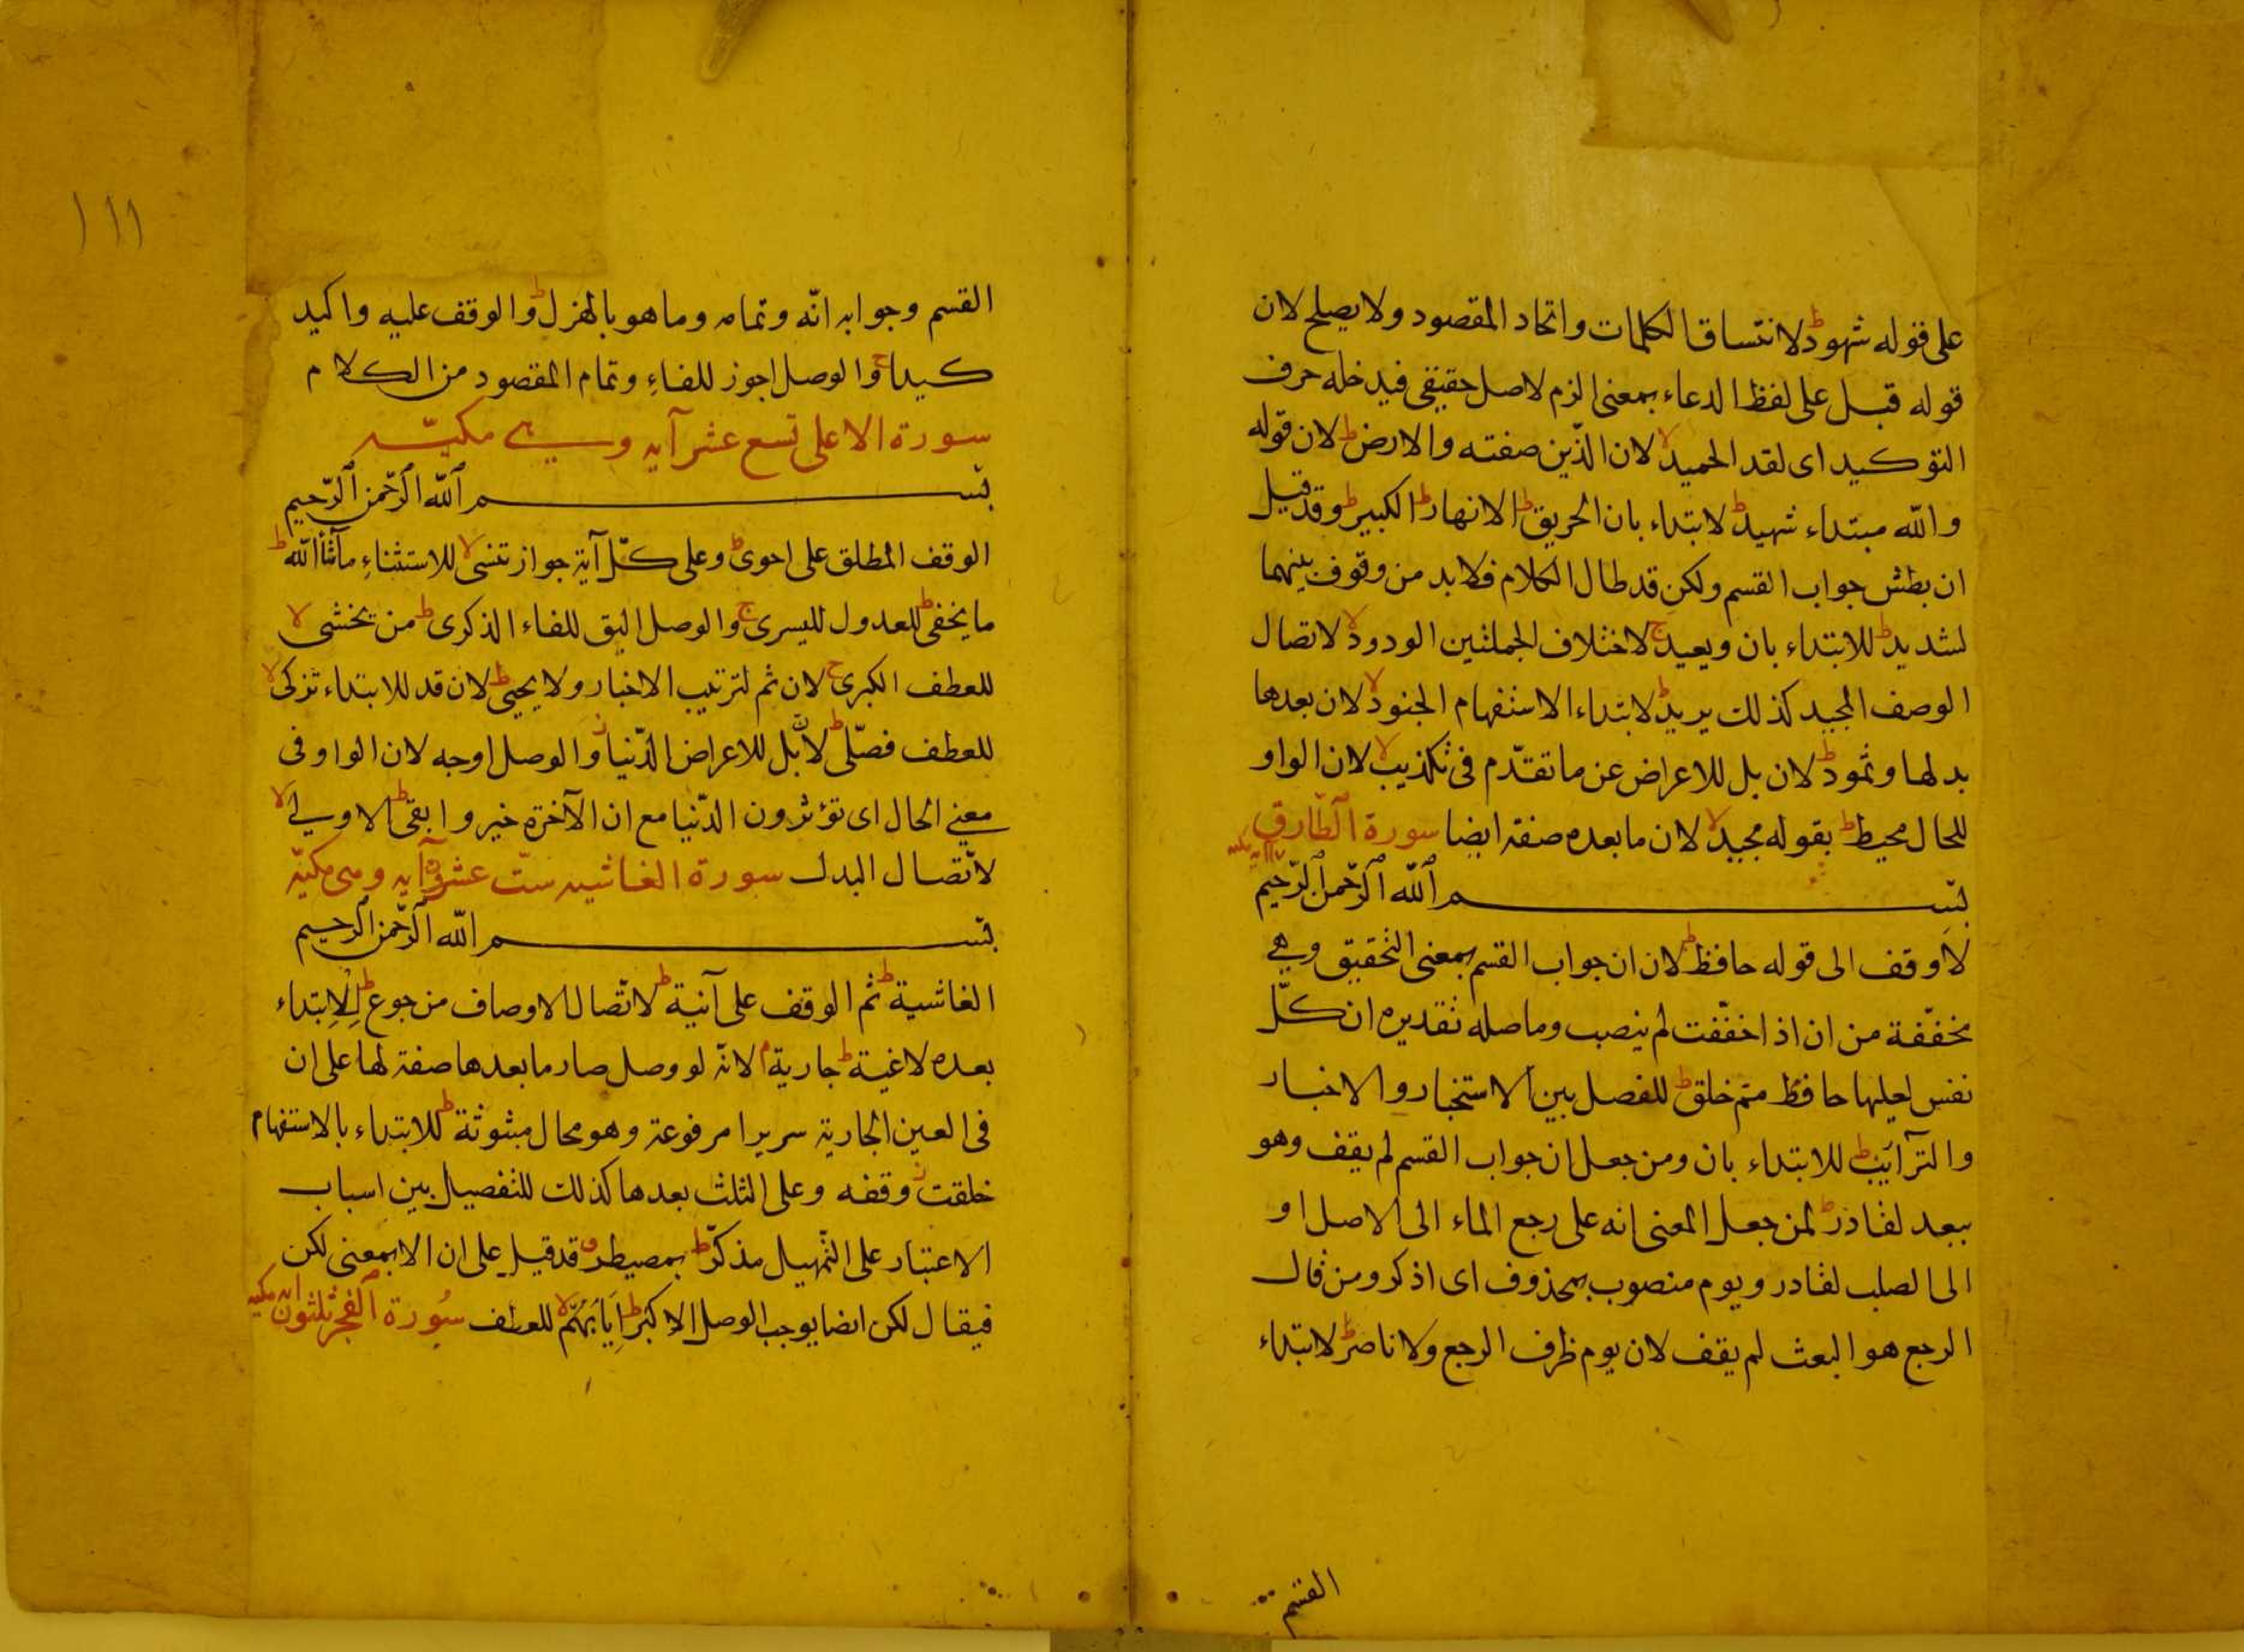 على قوله شهودط لاتساق الكلمات واتحاد المقصود ولا يصلح لان
قوله قبل على لفظ الدعاء بمعنى الزم لاصل حقيقى فيدخله حرف
التوكيد اى لقد الحميدلا لان الذّين صفته والارضط لان قوله
والله مبتداء شهيدط لابتداء بان الحريقط الانهارط الكبيرط وقد قيل
ان بطش جواب القسم ولكن قد طال الكلام فلابد من وقوف بينهما
لشديدط للابتداء بان ويعيدج لاختلاف الجملتين الودودلا لاتصال
الوصف المجيد كذلك يريدط لابتداء الاستفهام الجنودلا لان بعدها
بدلها وثمودط لان بل للاعراض عن ما تقدّم فى تكذيبلا لان الواو
للحال محيطط بقوله مجيدلا لان ما بعده صفة ايضا سورة الطّارق
بسم الله الرّحمن الرّحيم
لا وقف الى قوله حافظط لان ان جواب القسم بمعنى التحقيق وهي
مخفّفة من ان اذ اخفّفت لم ينصب وما صله تقديره ان كلّ
نفس لعليها حافظ ممّ خلقط للفصل بين الاستخبار والاخبار
والترآئبط للابتداء بان ومن جعل ان جواب القسم لم يقف وهو
ببعد لقادرط لمن جعل المعنى انه على رجع الماء الى الاصل او
الى الصلب لقادر ويوم منصوب بمحذوف اى اذكر ومن قال
الرجع هو البعث لم يقف لان يوم ظرف الرجع ولا ناصرط لابتداء
القسم
١١١
القسم وجوابه انّه وتمامه وما هو بالهزلط والوقف عليه واكيد
كيداج والوصل اجوز للفاءِ وتمام المقصود من الكلام
سورة الاعلى تسع عشر آية وهي مكيّة
بسم الله الرّحمن الرّحيم
الوقف المطلق على احوىط وعلى كلّ آية جواز تنسىلا للاستثناءِ ماشأالله ط
ما يخفىط للعدول لليسرىج والوصل اليق للفاء الذكرىط من يخشىلا
للعطف الكبرىج لان ثم لترتيب الاخبار ولا يحيىط لان قد للابتداء تزكىلا
للعطف فصّلىط لانّ بل للاعراض الدّنياز والوصل اوجه لان الواو فى
معنى الحال اى تؤثرون الدّنيا مع ان الآخرة خير وابقىط الاولىلا
لاتّصال البدل سورة الغاشيه ستّ عشرون آيه وهى مكيّة
بسم الله الرّحمن الرحيم
الغاشيةط ثم الوقف على آنيةط لاتّصال الاوصاف من جوعط لِلاِبتداء
بعده لاغيةط جاريةم لانّه لو وصل صار ما بعدها صفة لها على ان
فى العين الجارية سريرا مرفوعة وهو محال مبثوثةط للابتداء بالاستفهام
خلقتز وقفه وعلى الثلث بعدها كذلك للتفصيل بين اسباب
الاعتبار على التّمهيل مذكّرط بمصيطرلا قد قيل على ان الا بمعنى لكن
فيقال لكن ايضا يوجب الوصل الاكبرط اِيَابَهُمْلا للعطف سُورة الفجر ثلثون آيه مكيه